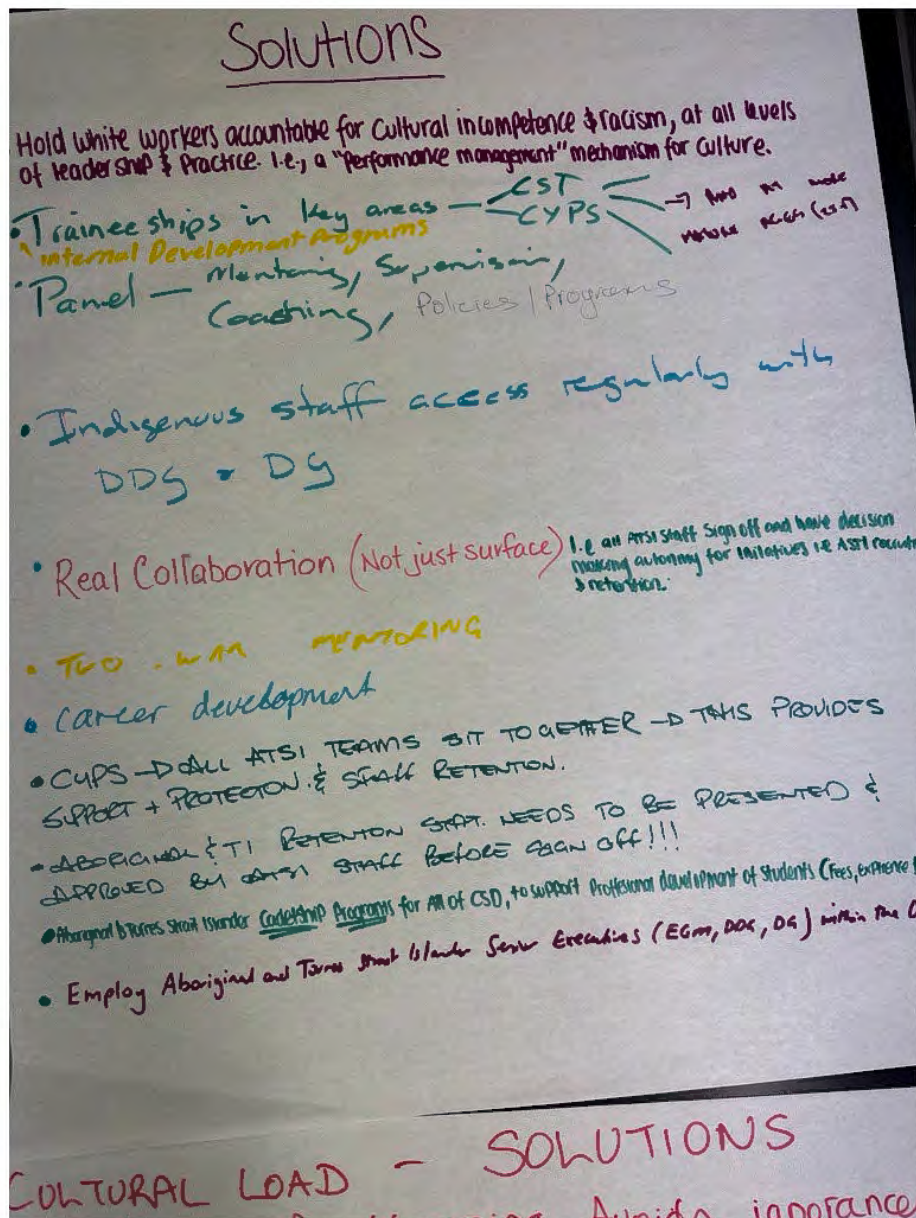 Solutions
Hold white workers accountable for Cultural incompetence & racism, at all levels
of leadership & Practice. i.e., a "Performance management" mechanism for culture.
• Traineeships in key areas — CST
CYPS
Internal Development Programs
• Panel — Mentoring, Supervision,
Coaching, Policies / Programs
• Indigenous staff access regularly with
DDG • DG
• Real Collaboration (Not just surface)
I.e all ATSI Staff Sign off and have decision
making autonomy for initiatives i.e ASTI
& retention.
• TWO - WAY MENTORING
• Career development
• CYPS → ALL ATSI TEAMS SIT TOGETHER → THIS PROVIDES
SUPPORT + PROTECTION & STAFF RETENTION.
• ABORIGINAL & TI RETENTION STRAT. NEEDS TO BE PRESENTED &
APPROVED BY ATSI STAFF BEFORE SIGN OFF!!!
• Aboriginal & Torres Strait Islander Cadetship Programs for All of CSD, to support Proffesional development of Students (Fees,
• Employ Aboriginal and Torres Strait Islander Senior Executives (EGM, DDG, DG) within the
CULTURAL LOAD - SOLUTIONS
ignorance